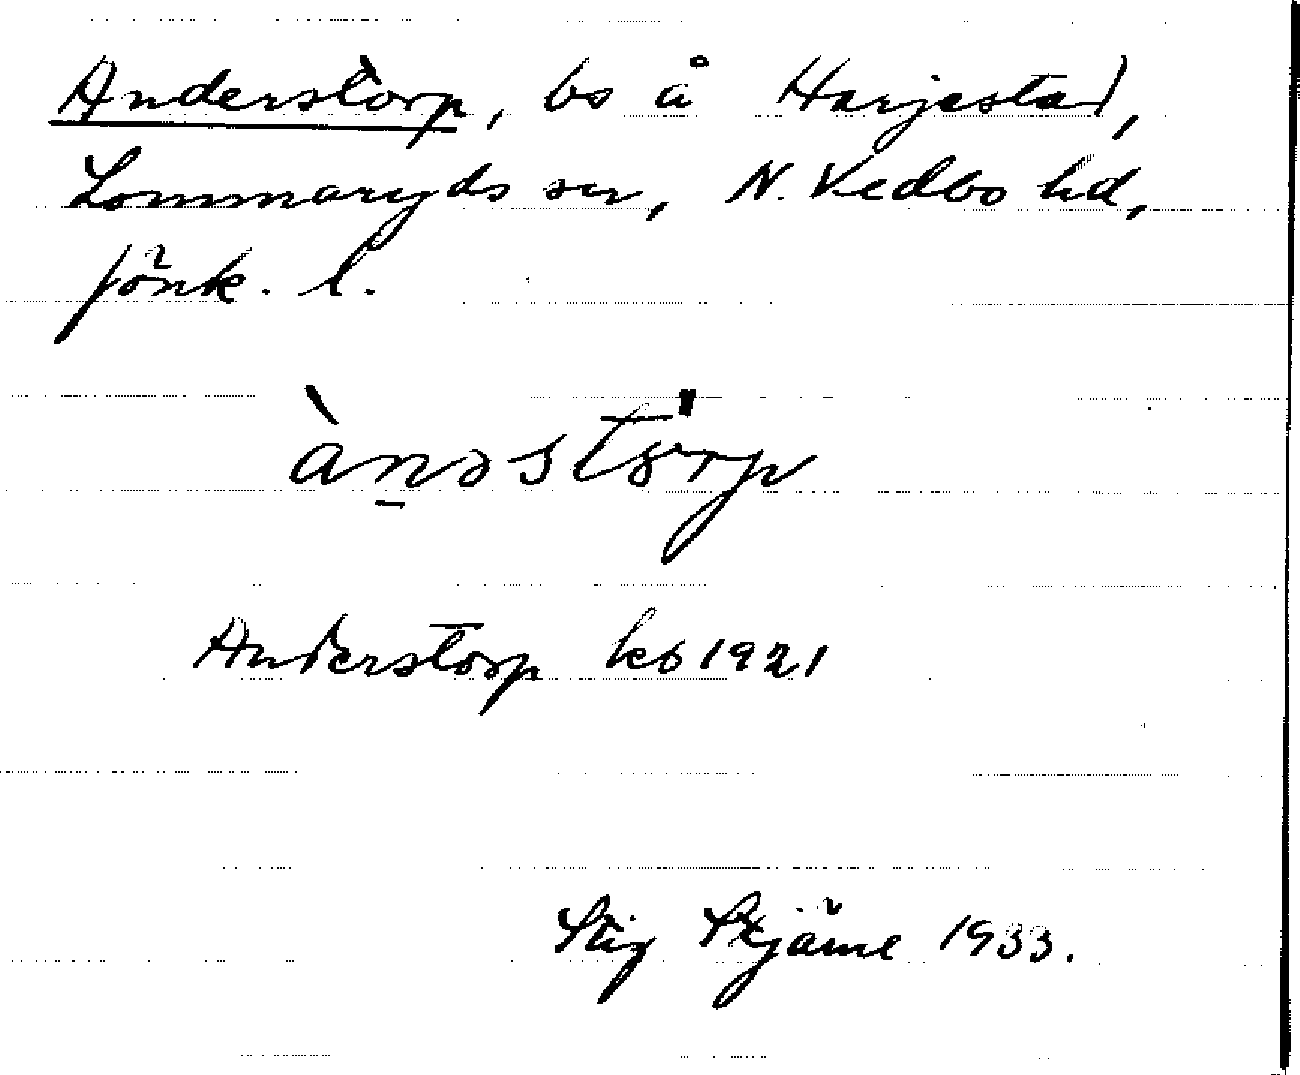 Anderstorp, bs å Harjestad,
Lommaryds sn, N. Vedbo hd,
Jönk. l.
ànəstörp
Anderstorp kb 1921
Stig
1933.